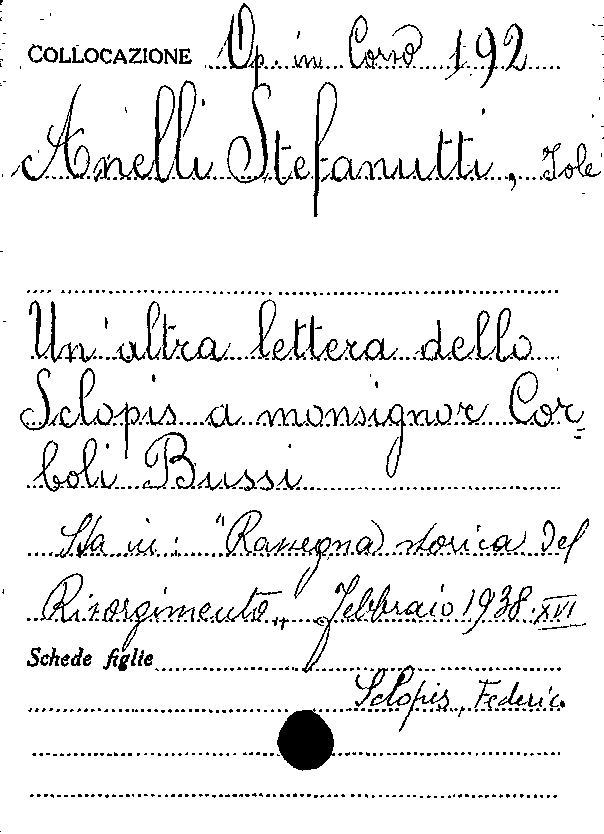 COLLOCAZIONE Op. in Corso 192
Anelli Stefanutti, Iole
Un'altra lettera dello
Sclopis a monsignor Cor=
boli Bussi
Sta in: "Rassegna storica del
Risorgimento„ Febbraio 1938.XVI
Schede figlie
Sclopis, Federico